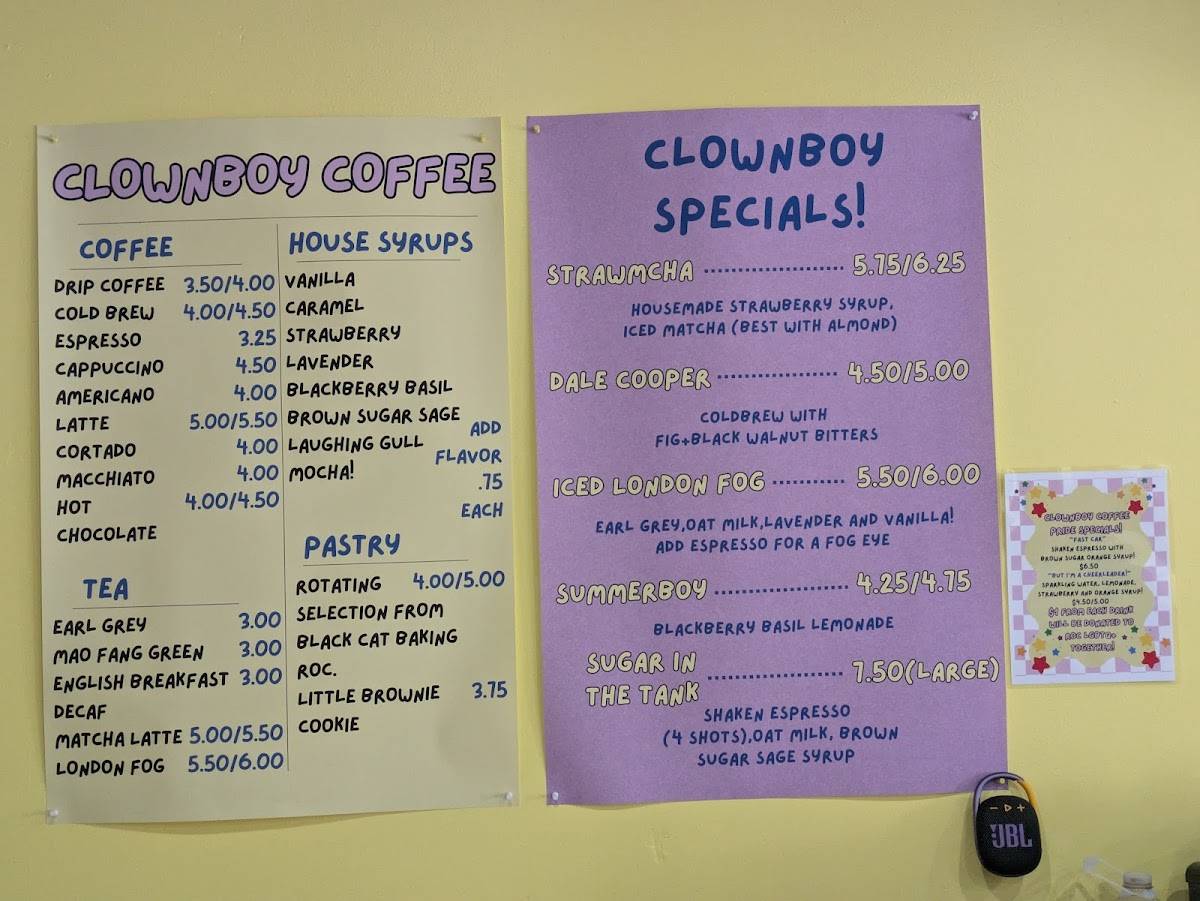 CLOWNBOY COFFEE
COFFEE
DRIP COFFEE 3.50/4.00
COLD BREW 4.00/4.50
ESPRESSO 3.25
CAPPUCCINO 4.50
AMERICANO 4.00
LATTE 5.00/5.50
CORTADO 4.00
MACCHIATO 4.00
HOT 4.00/4.50
CHOCOLATE
TEA
EARL GREY 3.00
MAO FANG GREEN 3.00
ENGLISH BREAKFAST 3.00
DECAF
MATCHA LATTE 5.00/5.50
LONDON FOG 5.50/6.00
HOUSE SYRUPS
VANILLA
CARAMEL
STRAWBERRY
LAVENDER
BLACKBERRY BASIL
BROWN SUGAR SAGE
LAUGHING GULL
MOCHA!
ADD
FLAVOR
.75
EACH
PASTRY
ROTATING 4.00/5.00
SELECTION FROM
BLACK CAT BAKING
ROC.
LITTLE BROWNIE 3.75
COOKIE
CLOWNBOY
SPECIALS!
STRAWMCHA 5.75/6.25
HOUSEMADE STRAWBERRY SYRUP,
ICED MATCHA (BEST WITH ALMOND)
DALE COOPER 4.50/5.00
COLDBREW WITH
FIG+BLACK WALNUT BITTERS
ICED LONDON FOG 5.50/6.00
EARL GREY,OAT MILK,LAVENDER AND VANILLA!
ADD ESPRESSO FOR A FOG EYE
SUMMERBOY 4.25/4.75
BLACKBERRY BASIL LEMONADE
SUGAR IN
THE TANK 7.50(LARGE)
SHAKEN ESPRESSO
(4 SHOTS),OAT MILK, BROWN
SUGAR SAGE SYRUP
CLOWNBOY COFFEE
PRIDE SPECIALS!
"FAST CAR"
SHAKEN ESPRESSO WITH
BROWN SUGAR ORANGE SYRUP!
$6.50
"BUT I'M A CHEERLEADER!"
SPARKLING WATER, LEMONADE,
STRAWBERRY AND ORANGE SYRUP!
$4.50/5.00
$1 FROM EACH DRINK
WILL BE DONATED TO
ROC LGBTQ+
TOGETHER!
JBL